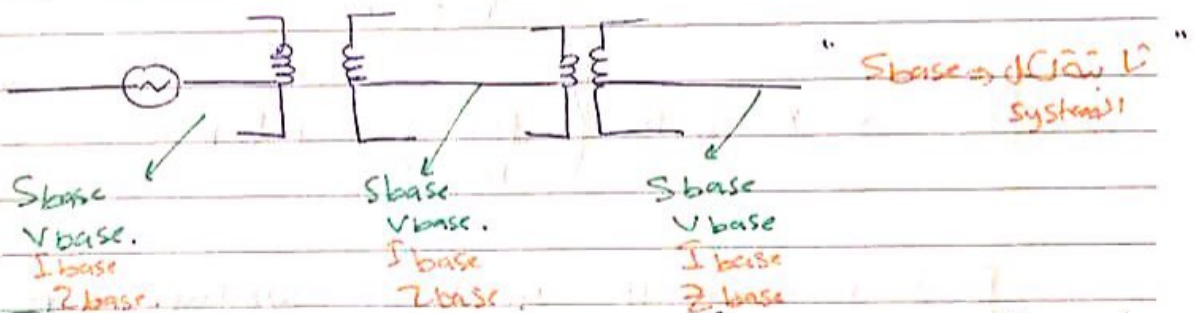 " Sbase → ثابتة لكل "
ال system
Sbase
Vbase.
Ibase
Zbase.
Sbase
Vbase.
Ibase
Zbase.
Sbase
Vbase
Ibase
Zbase